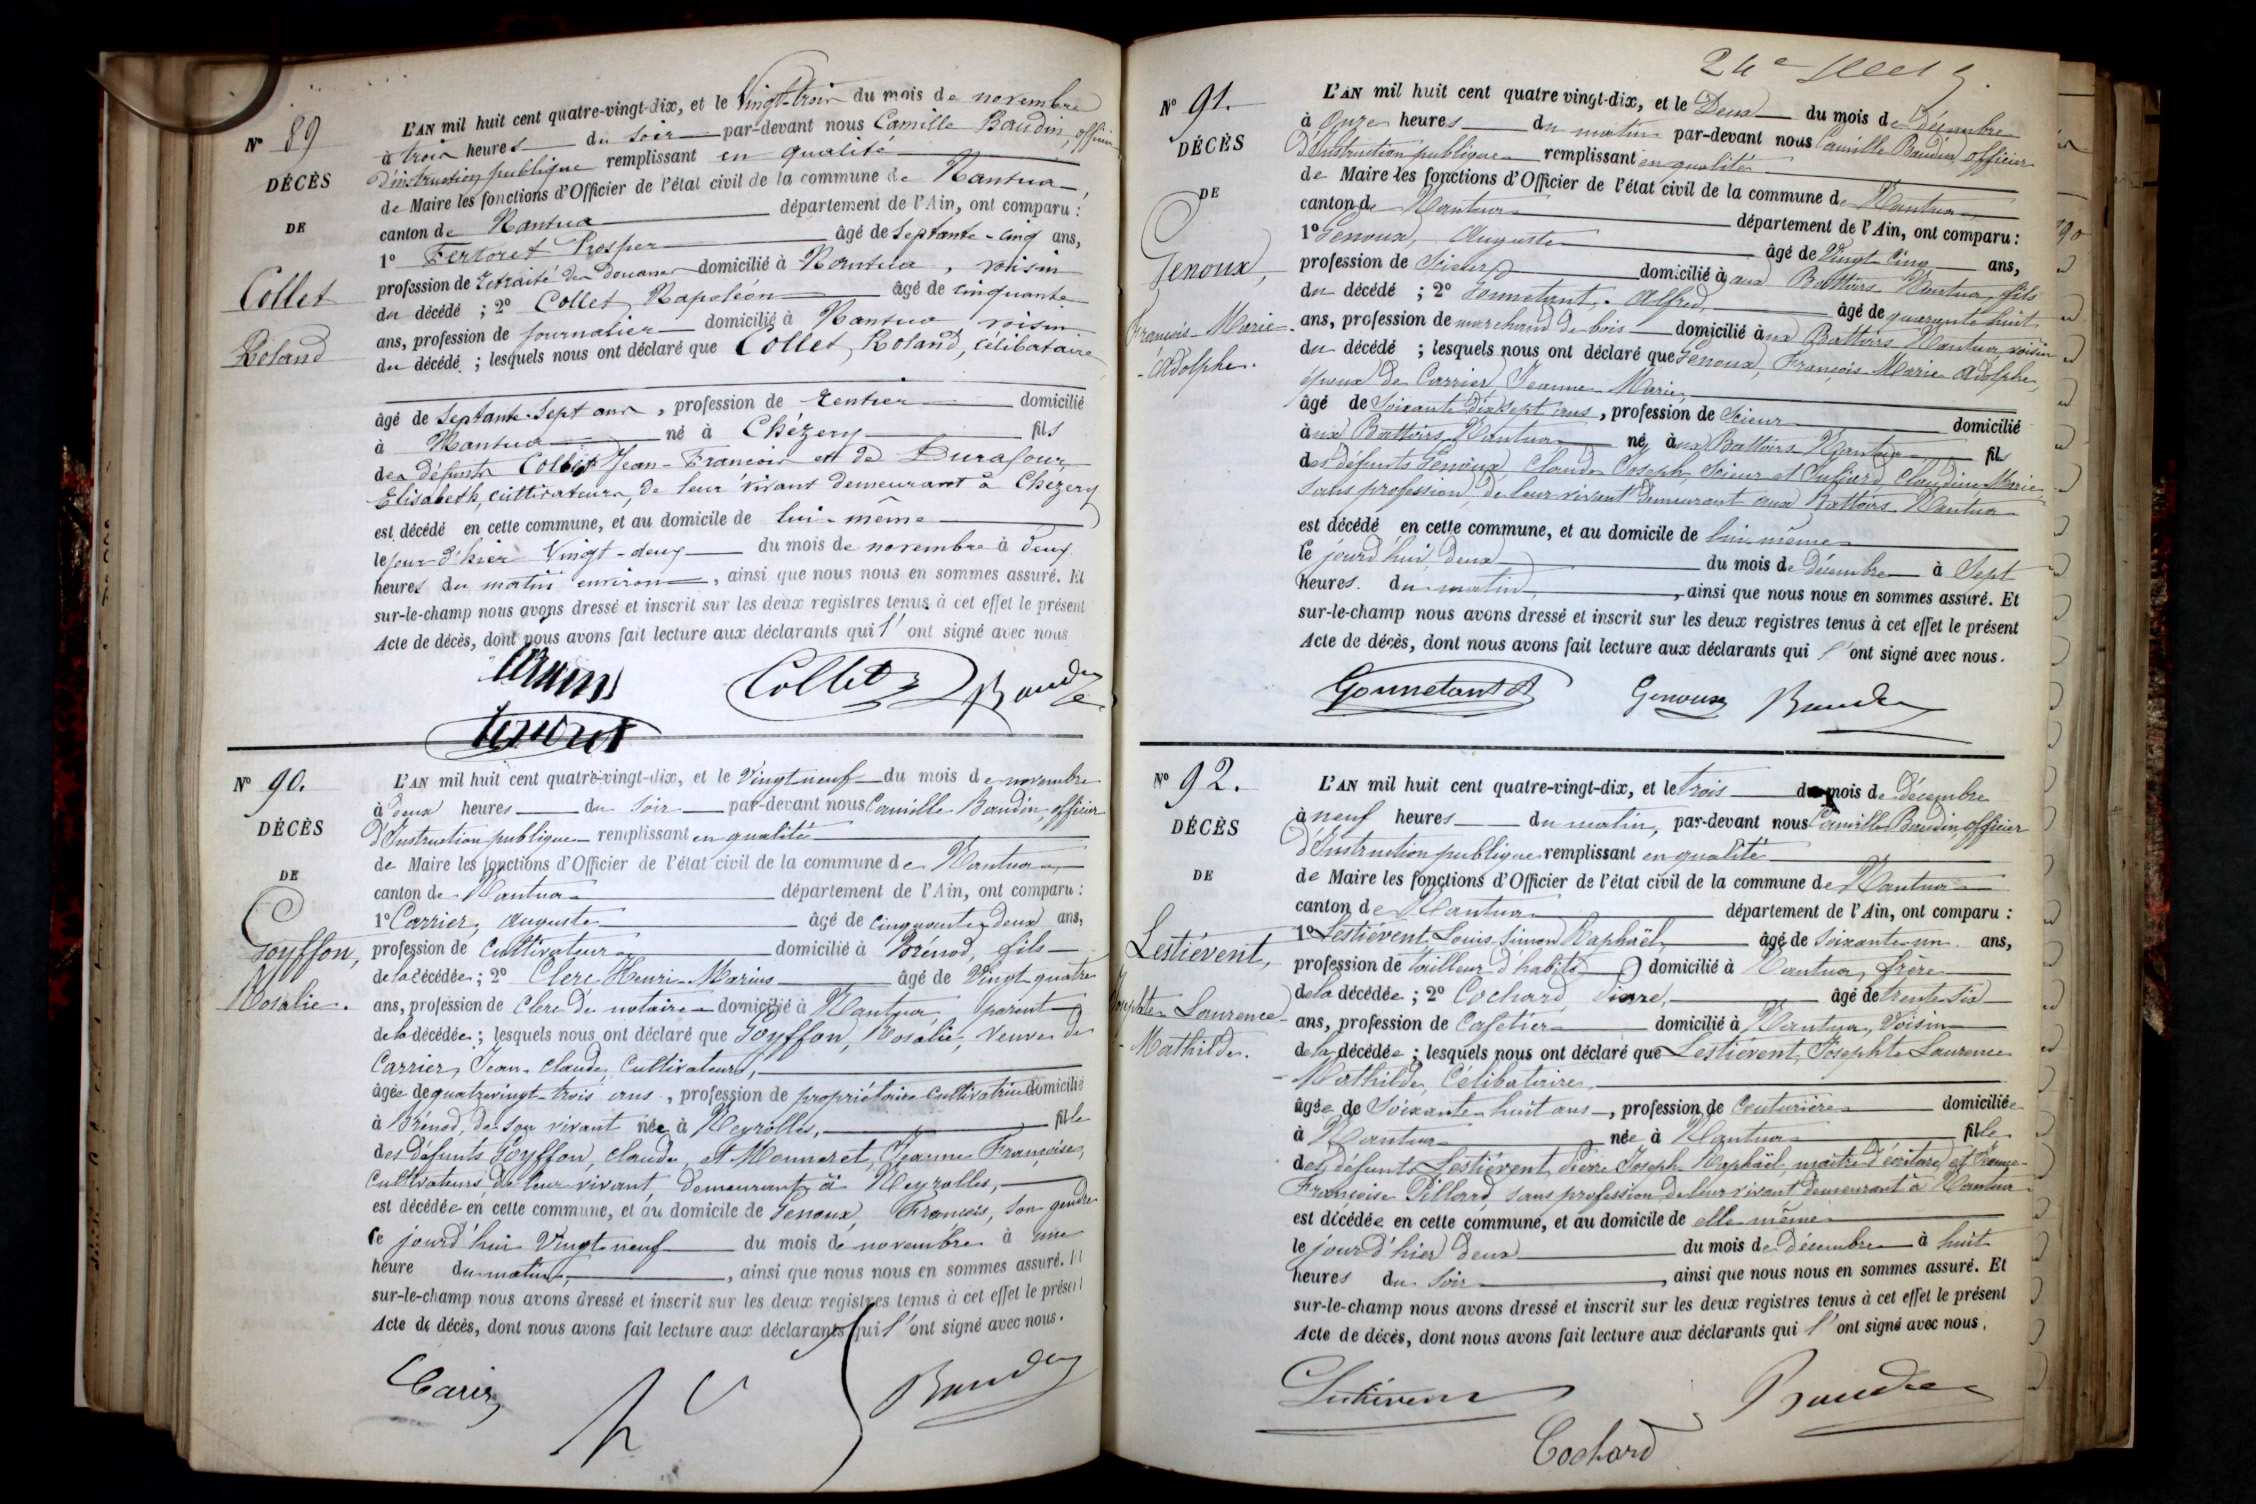 Nº 89
DÉCÈS
DE
Collet
Roland
L'AN mil huit cent quatre-vingt-dix, et le Vingt-trois du mois de novembre
à trois heures du soir par-devant nous Camille Baudin, officier
d'instruction publique remplissant en qualité
de Maire les fonctions d'Officier de l'état civil de la commune de Nantua,
canton de Nantua département de l'Ain, ont comparu :
1º Fertoret Prosper âgé de septante-cinq ans,
profession de retraité des douanes domicilié à Nantua, voisin
du décédé ; 2º Collet, Napoléon âgé de cinquante
ans, profession de journalier domicilié à Nantua voisin
du décédé ; lesquels nous ont déclaré que Collet, Roland, célibataire
âgé de septante-sept ans, profession de rentier domicilié
à Nantua né à Chézery fils
des défunts Collet Jean-François et de Durafour,
Elisabeth, cultivateurs, de leur vivant demeurant à Chézery
est décédé en cette commune, et au domicile de lui-même
le jour d'hier Vingt-deux du mois de novembre à deux
heures du matin environ, ainsi que nous nous en sommes assuré. Et
sur-le-champ nous avons dressé et inscrit sur les deux registres tenus à cet effet le présent
Acte de décès, dont nous avons fait lecture aux déclarants qui l'ont signé avec nous
Collet Baudin
Nº 90.
DÉCÈS
DE
Goyffon,
Rosalie.
L'AN mil huit cent quatre-vingt-dix, et le Vingt neuf du mois de novembre
à deux heures du soir par-devant nous Camille Baudin, officier
d'Instruction publique remplissant en qualité
de Maire les fonctions d'Officier de l'état civil de la commune de Nantua,
canton de Nantua département de l'Ain, ont comparu :
1º Carrier, Auguste âgé de cinquante-deux ans,
profession de Cultivateur domicilié à Brénod, fils
de la décédée ; 2º Clerc Henri-Marius âgé de Vingt quatre
ans, profession de Clerc de notaire domicilié à Nantua, parent
de la décédée ; lesquels nous ont déclaré que Goyffon, Rosalie, veuve de
Carrier, Jean-Claude, Cultivateur,
âgée de quatrevingt-trois ans, profession de propriétaire cultivatrice domicilié
à Brénod, de son vivant née à Neyrolles, fille
des défunts Goyffon, Claude, et Monneret, Jeanne Françoise,
Cultivateurs, de leur vivant, demeurant à Neyrolles,
est décédée en cette commune, et au domicile de Genoux, François, son gendre
le jourd'hui Vingt neuf du mois de novembre à une
heure du matin, ainsi que nous nous en sommes assuré. Et
sur-le-champ nous avons dressé et inscrit sur les deux registres tenus à cet effet le présent
Acte de décès, dont nous avons fait lecture aux déclarants qui l'ont signé avec nous.
Baudin
24e
Nº 91.
DÉCÈS
DE
Genoux,
François-Marie-
-Adolphe.
L'AN mil huit cent quatre vingt-dix, et le Deux du mois de décembre
à Onze heures du matin par-devant nous Camille Baudin, officier
d'Instruction publique remplissant en qualité
de Maire les fonctions d'Officier de l'état civil de la commune de Nantua,
canton de Nantua département de l'Ain, ont comparu :
1º Genoux, Auguste âgé de Vingt Cinq ans,
profession de Scieur domicilié à aux Battoirs Nantua, fils
du décédé ; 2º Gonnetant, Alfred, âgé de quarante huit
ans, profession de marchand de bois domicilié aux Battoirs Nantua, voisin
du décédé ; lesquels nous ont déclaré que Genoux, François Marie Adolphe,
époux de Carrier, Jeanne Marie,
âgé de Soixante dix sept ans, profession de Scieur domicilié
aux Battoirs Nantua né aux Battoirs Nantua fils
des défunts Genoux, Claude Joseph, Scieur et Juliard, Claudine Marie,
sans profession, de leur vivant demeurant aux Battoirs Nantua
est décédé en cette commune, et au domicile de lui même
le jourd'hui, deux du mois de décembre à Sept
heures du matin, ainsi que nous nous en sommes assuré. Et
sur-le-champ nous avons dressé et inscrit sur les deux registres tenus à cet effet le présent
Acte de décès, dont nous avons fait lecture aux déclarants qui l'ont signé avec nous.
Gonnetant A Genoux Baudin
Nº 92.
DÉCÈS
DE
Lestiévent,
Josephte Laurence-
-Mathilde.
L'AN mil huit cent quatre-vingt-dix, et le trois du mois de décembre
à neuf heures du matin, par-devant nous Camille Baudin, officier
d'Instruction publique remplissant en qualité
de Maire les fonctions d'Officier de l'état civil de la commune de Nantua
canton de Nantua département de l'Ain, ont comparu :
1º Lestiévent, Louis Simon Raphaël, âgé de soixante un ans,
profession de tailleur d'habits domicilié à Nantua, frère
de la décédée ; 2º Cochard, Pierre, âgé de trente six
ans, profession de Cafetier domicilié à Nantua, Voisin
de la décédée ; lesquels nous ont déclaré que Lestiévent, Josephte Laurence
-Mathilde, Célibataire,
âgée de Soixante huit ans, profession de Couturière domiciliée
à Nantua née à Nantua fille
des défunts Lestiévent, Pierre Joseph Raphaël, maître d'écriture, et Jeanne-
Françoise Pillard, sans profession, de leur vivant demeurant à Nantua
est décédée en cette commune, et au domicile de elle même
le jour d'hier deux du mois de décembre à huit
heures du soir, ainsi que nous nous en sommes assuré. Et
sur-le-champ nous avons dressé et inscrit sur les deux registres tenus à cet effet le présent
Acte de décès, dont nous avons fait lecture aux déclarants qui l'ont signé avec nous.
Lestiévent Baudin
Cochard